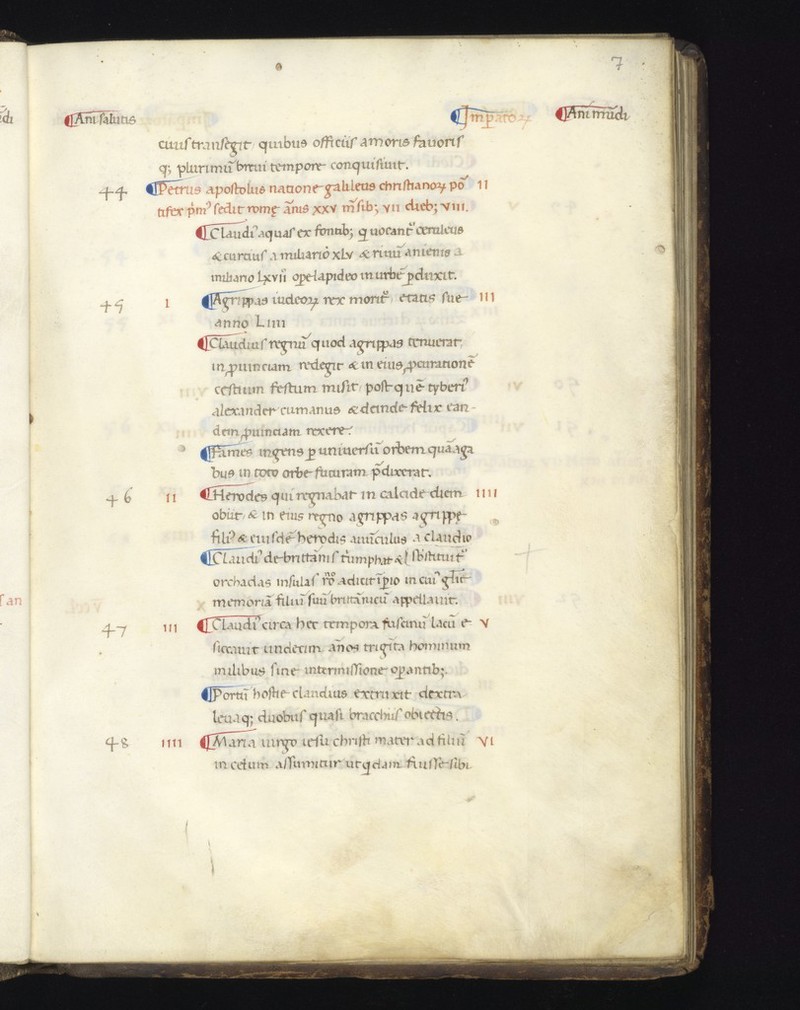 7
Ani salutis Imperatoꝝ Ani mũdi
cuiꝰ transegit quibus officijs amoris fauoris
q; plurimũ breui tempore conquisiuit.
44 Petrus apostolus natione galileus christianoꝝ põ II
tifex pmꝰ sedit romę ãnis XXV mẽsib; VII dieb; VIII.
Claudiꝰ aquas ex fontib; q uocant᷑ ceruleus
& curtius a miliario XLV & riuũ anienis a
miliario LXVII ope lapideo in urbẽ pduxit.
45 I Agrippas iudeoꝝ rex morit᷑ etatis sue III
anno LIIII
Claudius regnũ quod agrippas tenuerat,
in ꝓuinciam redegit & in eius ꝓcurationẽ
cestium festum misit post quẽ tyberiꝰ
alexander cumanus & deinde felix ean-
dem ꝓuinciam rexere.
Fames ingens p uniuersũ orbem quã aga
bus in toto orbe futuram pdixerat.
46 II Herodes qui regnabat in calcide diem IIII
obiit, & in eius regno agrippas agrippę
filiꝰ & eiusdẽ herodis auũculus a claudio
Claudiꝰ de brittãnis tumphat & sbstituit᷑
orchadas insulas rõ adicit ipio in cuiꝰ glię
memoriã filiũ suũ brittãnicũ appellauit.
47 III Claudiꝰ circa hec tempora fuscinũ lacũ e- V
siccauit undecim ãnos trigĩta hominum
milibus sine intermissione opantib;.
Portũ hostie claudius extruxit dextra
leuaq; duobus quasi bracchijs obiectis.
48 IIII Maria uirgo iesu christi mater ad filiũ VI
in celum assumitur ut qdam fuisse sibi